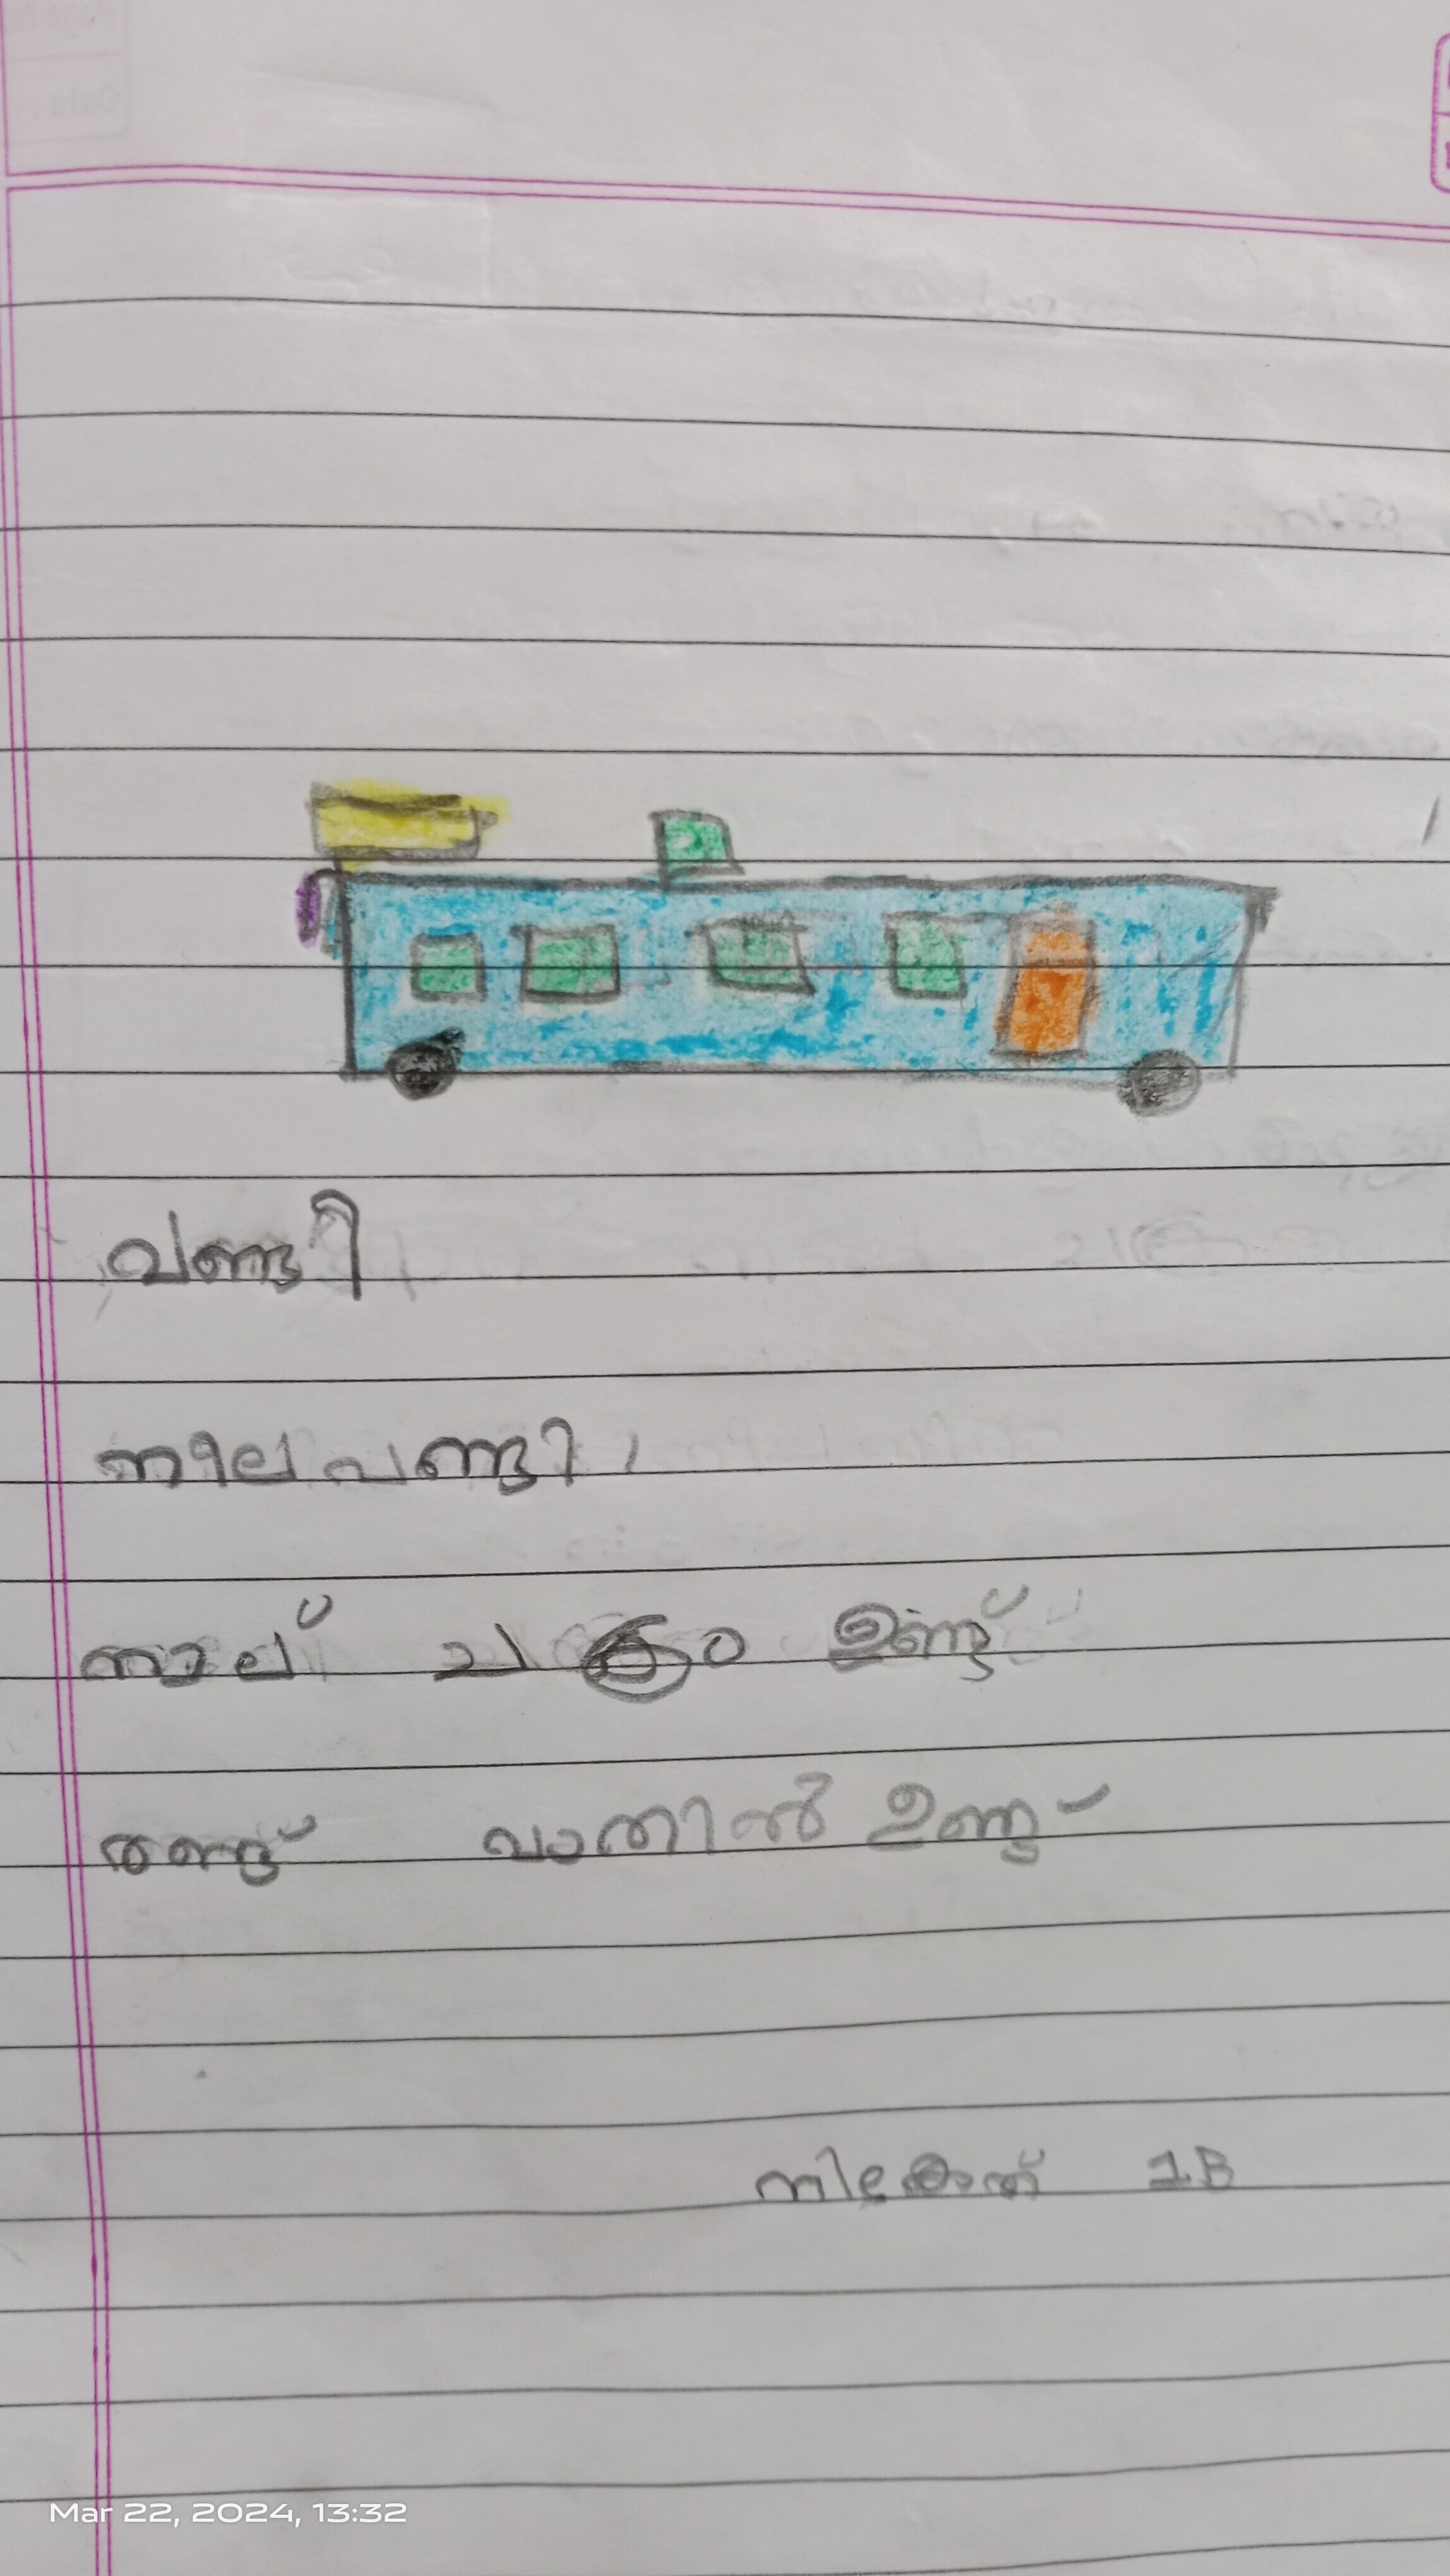 വണ്ടി
നീല വണ്ടി,
നാല് ചക്രം ഉണ്ട്
രണ്ട് വാതിൽ ഉണ്ട്
1B
Mar 22, 2024, 13:32